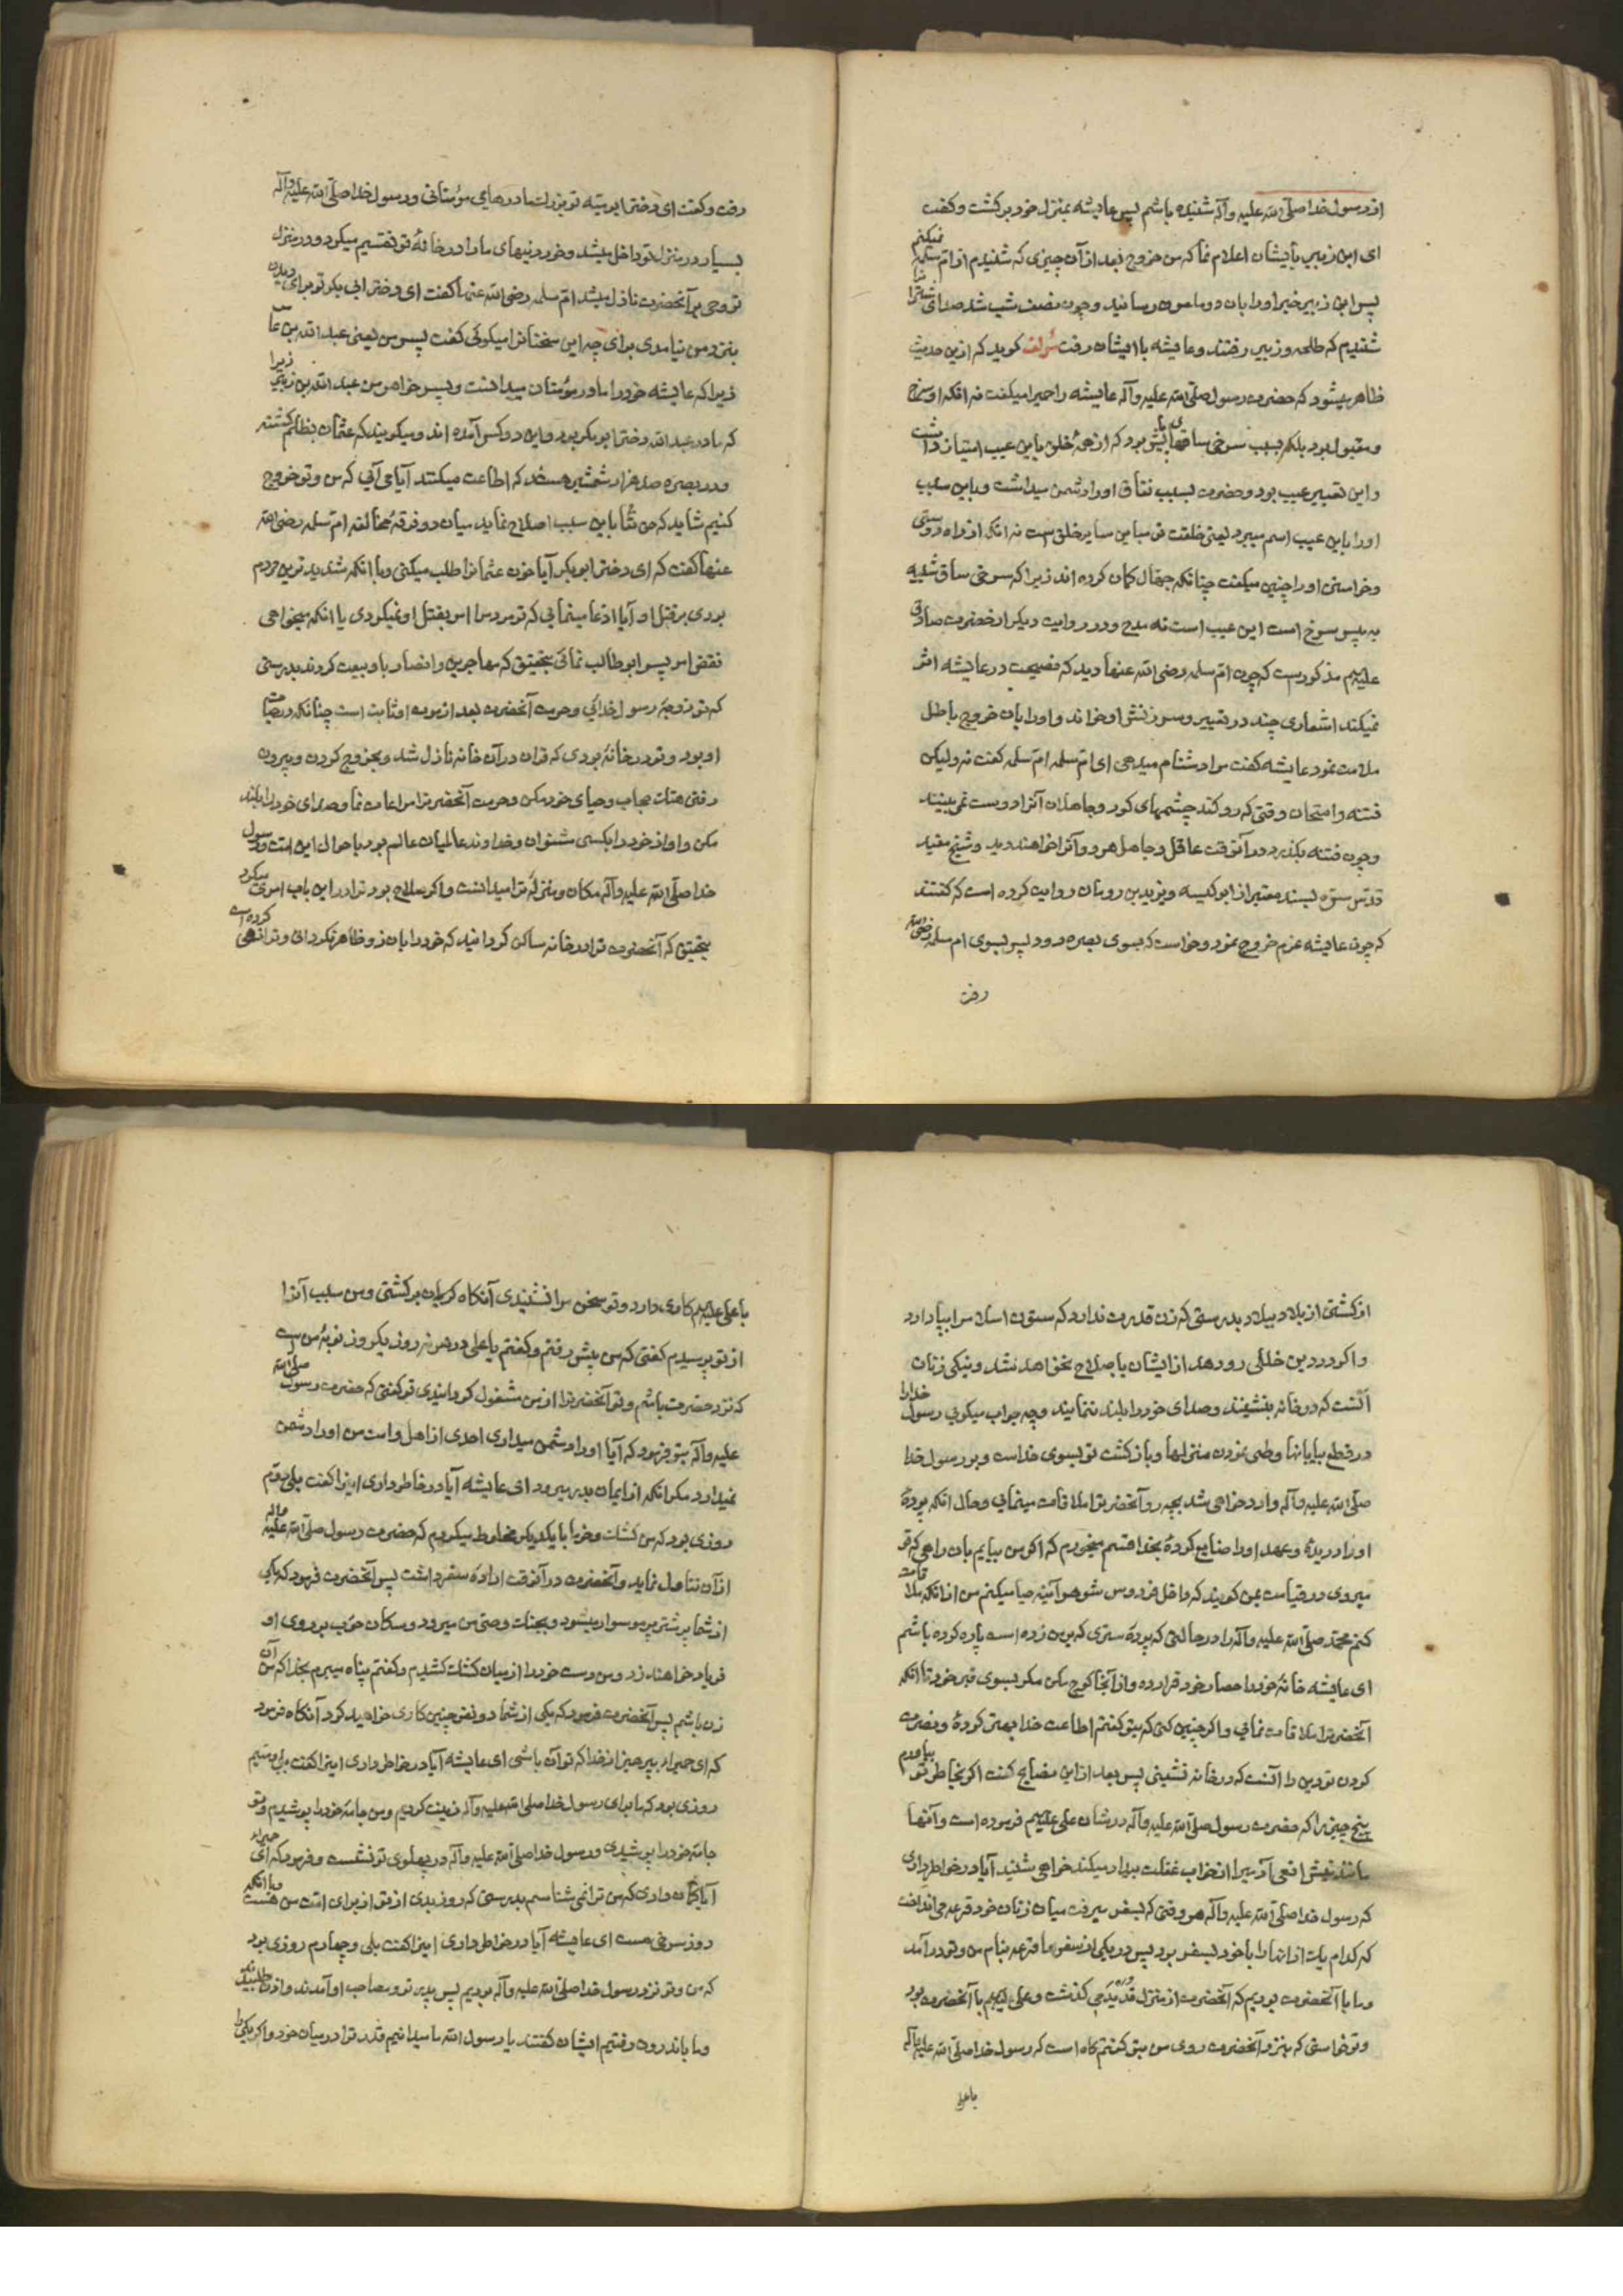 از رسول خدا صلی الله علیه وآله شنیده باشم پس عایشه بمنزل خود برکشت و کفت
ای ابن زبیر بایشان اعلام نما که من خروج نمیکنم بعد از آن چیزی که شنیدم از ام سلمه
پس ابن زبیر خبر او را بان دو ملعون رسانید و چون نصف شب شد صدای شترانرا
شنیدم که طلحه و زبیر رفتند و عایشه با ایشان رفت مؤلف کوید که ازین حدیث
ظاهر میشود که حضرت رسول صلی الله علیه وآله عایشه را حمیرا میکفت نه انکه او سرخ
و مقبول بود بلکه بسبب سرخی ساقهای پایش بود که از همهٔ خلق باین عیب امتیاز داشت
و این تعبیر عیب بود و حضرت بسبب نفاق او را دشمن میداشت و باین سبب
او را باین عیب اسم میبرد یعنی خلقت تو مباین سایر خلق ست نه انکه از راه دوستی
و خواستن او را چنین میکفت چنانکه جهال کمان کرده اند زیرا که سرخی ساق شبیه
به پیس سرخ است این عیب است نه مدح و در روایت دیکر از حضرت صادق
علیه السلام مذکورست که چون ام سلمه رضی الله عنها دید که نصیحت در عایشه اثر
نمیکند اشعاری چند در تعییر و سرزنش او خواند و او را بان خروج باطل
ملامت نمود عایشه کفت مرا دشنام میدهی ای ام سلمه ام سلمه کفت نه ولیکن
فتنه و امتحان وقتی که رو کند چشمهای کور و جاهلان آنرا درست نمی بینند
و چون فتنه بکذرد در آنوقت عاقل و جاهل هر دو آنرا خواهند دید و شیخ مفید
قدس سره بسند معتبر از ابو کبسه و یزید بن رومان روایت کرده است که کفتند
که چون عایشه عزم خروج نمود و خواست که بسوی بصره رود پس بسوی ام سلمه رضی الله عنها
رفت
رفت و کفت ای دختر ابو امیه تو بزرك مادرهای مؤمنانی و رسول خدا صلی الله علیه وآله
بسیار در منزل تو داخل میشد و خوردنیهای ما را در خانهٔ تو تقسیم میکرد و در منزل
تو وحی بر آنحضرت نازل میشد ام سلمه رضی الله عنها کفت ای دختر ابی بکر تو برای دیدن
بنزد من نیامدی برای چه این سخنانرا میکوئی کفت پسر من یعنی عبد الله بن عامر
زیرا که عایشه خود را مادر مؤمنان میدانست و پسر خواهر من عبد الله بن زبیر زیرا
که مادر عبد الله دختر ابو بکر بود و این دو کس آمده اند و میکویند که عثمان بظلم کشته شد
و در بصره صد هزار شمشیر هست که اطاعت میکنند آیا می آئی که من و تو خروج
کنیم شاید که حق تعالی باین سبب اصلاح نماید میان دو فرقهٔ مخالفه ام سلمه رضی الله
عنها کفت که ای دختر ابو بکر آیا خون عثمانرا طلب میکنی و با انکه شدیدترین مردم
بودی بر قتل او آیا ادعا مینمایی که تو مردم را امر بقتل او نمیکردی یا انکه میخواهی
نقض امر پسر ابو طالب نمائی بتحقیق که مهاجرین و انصار باو بیعت کردند بدرستی
که تو زوجهٔ رسول خدائی و حرمت آنحضرت بعد از موت او ثابت است چنانکه در حیات
او بود و تو در خانهٔ بودی که قران در آن خانه نازل شد و بخروج کردن و بیرون
رفتن هتك حجاب و حیای خود مکن و حرمت آنحضرترا مراعات نما و صدای خود را بلند
مکن و آواز خود را بکسی مشنوان و خداوند عالمیان عالم بود باحوال این امت و رسول
خدا صلی الله علیه وآله مکان و منزلهٔ ترا میدانست و اکر صلاح بود ترا در این باب امر میکرد
بتحقیق که آنحضرت ترا در خانه ساکن کردانید که خود را بارز و ظاهر نکردانی و ترا نهی کرده است
از کشتن از بلاد ببلاد بدرستی که زن قدرت ندارد که ستون اسلام را بپا دارد
و اکر در دین خللی رو دهد از ایشان باصلاح نخواهد شد و نیکی زنان
آنست که در خانه بنشینند و صدای خود را بلند ننمایند و چه جواب میکوئی رسول خدا را
در قطع بیابانها و طی نمودن منزلها و بازکشت تو بسوی خداست و بر رسول خدا
صلی الله علیه وآله وارد خواهی شد بچه رو آنحضرترا ملاقات مینمایی و حال انکه پردهٔ
او را دریدهٔ و عهد او را ضایع کردهٔ بخدا قسم میخورم که اکر من بیایم بان راهی که تو
میروی در قیامت بمن کویند که داخل فردوس شو هر آینه حیا میکنم من از انکه ملاقات
کنم محمد صلی الله علیه وآله را در حالتی که پردهٔ ستری که بر من زده است پاره کرده باشم
ای عایشه خانهٔ خود را حصار خود قرار ده و از آنجا کوچ مکن مکر بسوی قبر خود تا انکه
آنحضرترا ملاقات نمائی و اکر چنین کنی که بتو کفتم اطاعت خدا بهتر کردهٔ و نصرت
کردن تو دین را آنست که در خانه نشینی پس بعد از این نصایح کفت اکر بخاطر تو بیاورم
پنج چیز را که حضرت رسول صلی الله علیه وآله در شان علی علیه السلام فرموده است و آنها
مانند نیش افعی آدمیرا از خواب غفلت بیدار میکند خواهی شنید آیا در خواطر داری
که رسول خدا صلی الله علیه وآله هر وقتی که بسفر میرفت میان زنان خود قرعه می انداخت
که کدام یك از انها را با خود بسفر برد پس در یکی از سفرها قرعه بنام من و تو در آمد
و ما با آنحضرت بودیم که آنحضرت از منزل قُدَید می کذشت و علی علیه السلام با آنحضرت بود
و تو خواستی که بنزد آنحضرت روی من بتو کفتم کاه است که رسول خدا صلی الله علیه وآله
با علی
با علی علیه السلام کاری دارد و تو سخن مرا نشنیدی آنکاه کریان برکشتی و من سبب آنرا
از تو پرسیدم کفتی که من پیش رفتم و کفتم یا علی در هر نه روز یکروز نوبهٔ من ست
که نزد حضرت باشم و تو آنحضرترا از من مشغول کردانیدی تو کفتی که حضرت رسول صلی الله
علیه وآله بتو فرمود که آیا او را دشمن میداری احدی از اهل و امت من او را دشمن
نمیدارد مکر انکه از ایمان بدر میرود ای عایشه آیا در خاطر داری اینرا کفت بلی دویم
روزی بود که من کشك و خرما با یکدیکر مخلوط میکردم که حضرت رسول صلی الله علیه وآله
از آن تناول نماید و آنحضرت در آنوقت ارادهٔ سفر داشت پس آنحضرت فرمود که یکی
از شما بر شتر پرمو سوار میشود و بجنك وصی من میرود و سکان حوب بر روی او
فریاد خواهند زد و من دست خود را از میان کشك کشیدم و کفتم پناه میبرم بخدا که من آن
زن باشم پس آنحضرت فرمود که یکی از شما دو نفر چنین کاری خواهید کرد آنکاه فرمود
که ای حمیرا بپرهیز از خدا که تو آن باشی ای عایشه آیا در خاطر داری اینرا کفت بلی و سیم
روزی بود که ما برای رسول خدا صلی الله علیه وآله زینت کردیم و من جامهٔ خود را پوشیدم و تو
جامهٔ خود را پوشیدی و رسول خدا صلی الله علیه وآله در پهلوی تو نشست و فرمود که ای حمیرا
آیا کمان داری که من ترا نمی شناسم بدرستی که روز بدی از تو از برای امت من هست با انکه
روز سرخی هست ای عایشه آیا در خواطر داری اینرا کفت بلی و چهارم روزی بود
که من و تو نزد رسول خدا صلی الله علیه وآله بودیم پس پدر تو و مصاحب او آمدند و اذن طلبیدند
و ما باندرون رفتیم ایشان کفتند یا رسول الله ما میدانیم قدر ترا در میان خود و اکر یکی را